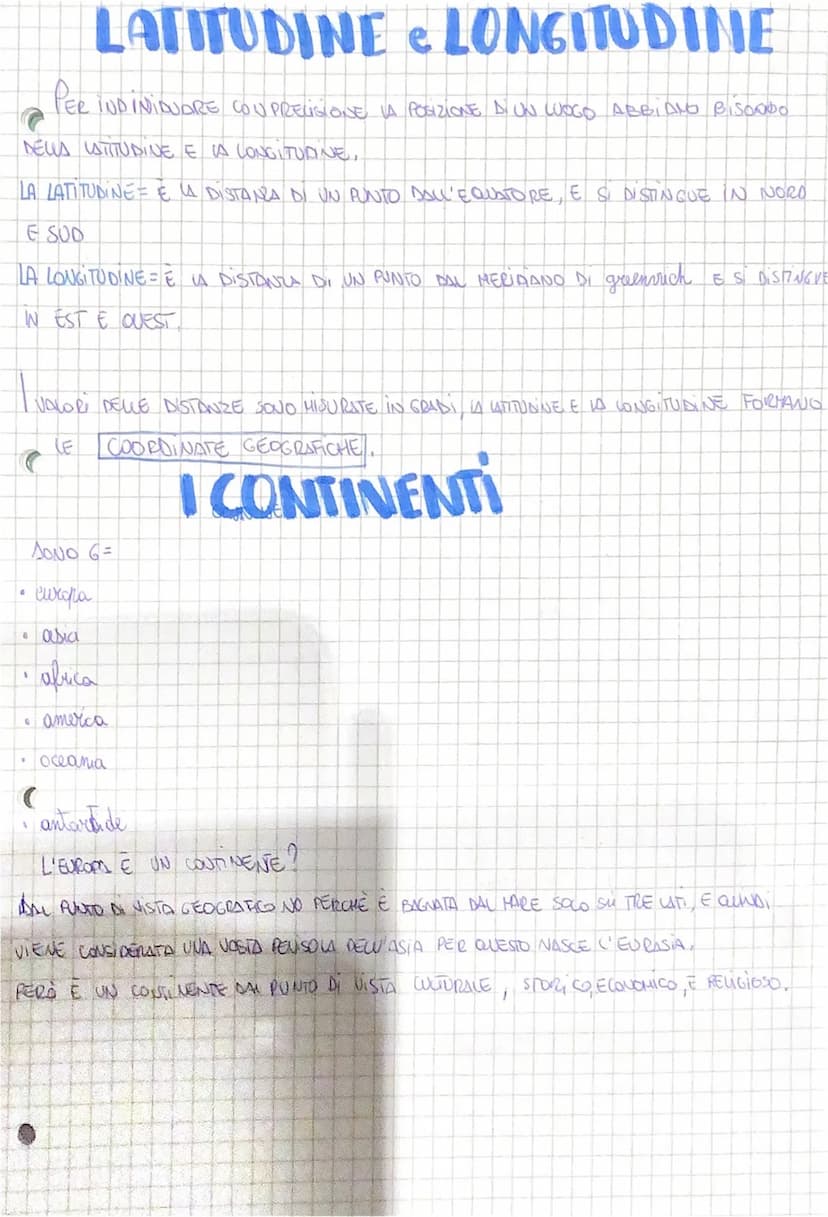 LATITUDINE e LONGITUDINE
PER INDIVIDUARE CON PRECISIONE LA POSIZIONE DI UN LUOGO ABBIAMO BISOGNO
DELLA LATITUDINE E LA LONGITUDINE.
LA LATITUDINE= È LA DISTANZA DI UN PUNTO DALL'EQUATORE, E SI DISTINGUE IN NORD
E SUD
LA LONGITUDINE= È LA DISTANZA DI UN PUNTO DAL MERIDIANO DI greenwich E SI DISTINGUE
IN EST E OVEST.
I VALORI DELLE DISTANZE SONO MISURATE IN GRADI, LA LATITUDINE E LA LONGITUDINE FORMANO
LE COORDINATE GEOGRAFICHE.
I CONTINENTI
SONO 6=
• europa
• asia
• africa
• america
• oceania
• antartide
L'EUROPA È UN CONTINENTE?
DAL PUNTO DI VISTA GEOGRAFICO NO PERCHÈ È BAGNATA DAL MARE SOLO SU TRE LATI, E QUINDI
VIENE CONSIDERATA UNA VASTA PENISOLA DELL'ASIA PER QUESTO NASCE L'EURASIA.
PERÒ È UN CONTINENTE DAL PUNTO DI VISTA CULTURALE, STORICO, ECONOMICO, E RELIGIOSO.